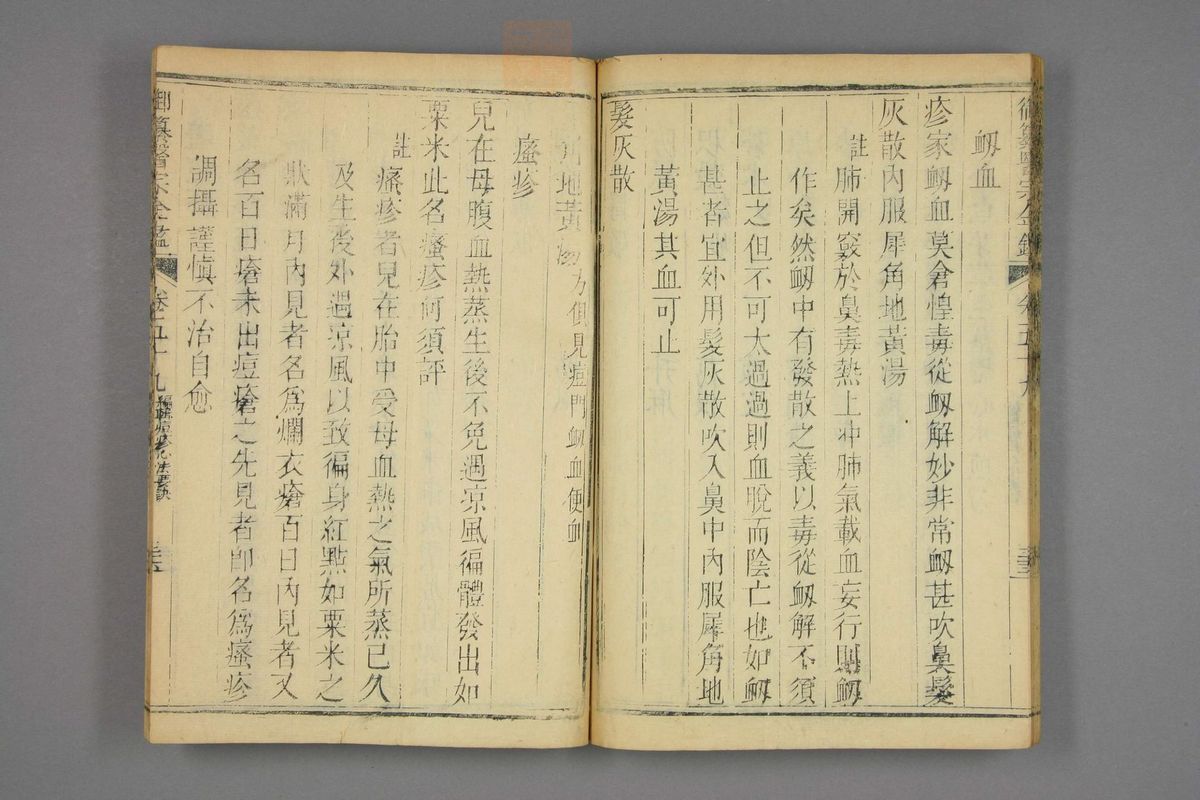 御纂醫宗金鑑 卷五十九
衂血
疹家衂血莫倉惶毒從衂解妙非常衂甚吹鼻髮
灰散內服犀角地黃湯
註肺開竅於鼻毒熱上冲肺氣載血妄行則衂
作矣然衂中有發散之義以毒從衂解不須
止之但不可太過過則血脫而陰亡也如衂
甚者宜外用髮灰散吹入鼻中內服犀角地
黃湯其血可止
髮灰散
地黃湯方俱見痘門衂血便血
瘙疹
兒在母腹血熱蒸生後不免遇凉風徧體發出如
粟米此名瘙疹何須評
註瘙疹者兒在胎中受母血熱之氣所蒸已久
及生後外遇凉風以致徧身紅點如粟米之
狀滿月內見者名爲爛衣瘡百日內見者又
名百日瘡未出痘瘡之先見者卽名爲瘙疹
調攝謹愼不治自愈
御纂醫宗金鑑 卷五十九 編輯痘疹心法要訣